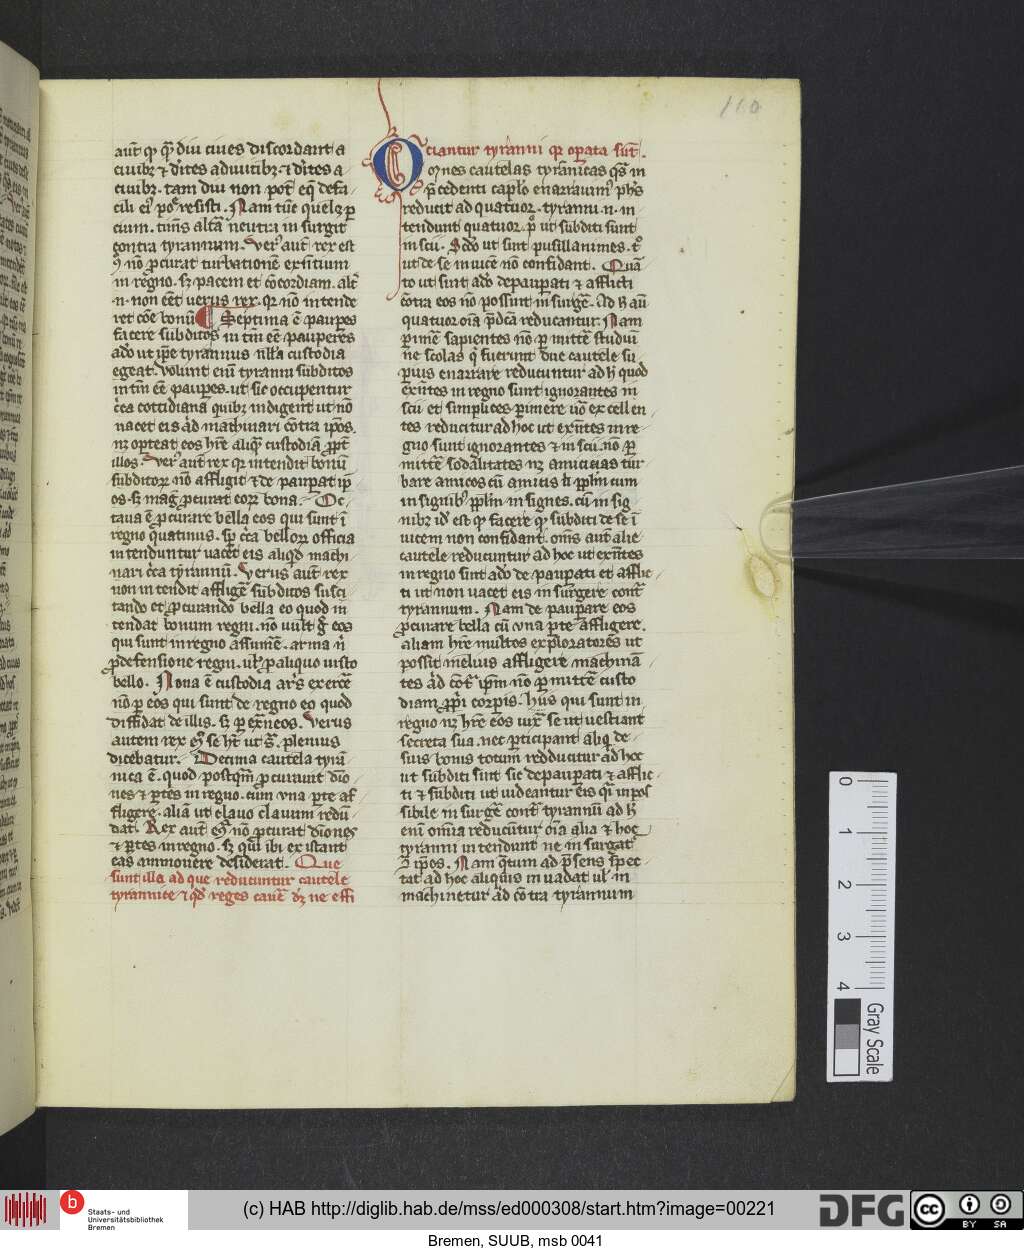 110
aut̄ qꝫ q̄ diu ciues discordant a
ciuibꝫ ⁊ diītes a diuitibꝫ ⁊ diītes a
ciuibꝫ. tam diu non pot̄ eq̄ defa
cili eiꝰ
resisti. Nam tūc quelꝫ
cium. timēs altā neutra in surgit
contra tyrannum. Verꝰ aut̄ rex est
ꝙ nō ꝓcurat turbationē exn̄tium
in regno. sꝫ pacem et cōcordiam. alr̄
.n. non eēt verus rex. qꝛ nō intende
ret cōe bonū Septima ē paupes
facere subditos in tm̄ eē pauperes
adō ut ip̄e tyrannus nlla custodia
egeat. volunt enī tyranni subditos
in tm̄ eē paupes. ut sic occupentur
circa cottidiana quibꝫ indigent ut nō
uacet eis ad machinari cōtra ip̄os.
nꝫ oporteat eos hr̄e aliq̄ custodiā ꝓpt̄
illos. Verꝰ aut̄ rex qꝛ intendit bonū
subditoꝝ nō affligit ⁊ de pauperat ip̄
os. sꝫ maḡ ꝓcurat eoꝝ bona. Oc
taua ē ꝓcurare bella eos qui sunt ī
regno quatinus. sp̄ circa belloꝝ officia
intenduntur uacet eis aliqd machi
nari circa tyrannū. Verus aut̄ rex
non intendit affligē subditos susci
tando et ꝓcurando bella eo quod in
tendat bonum regni. nō uult ḡ eos
qui sunt in regno assumē. arma nī
ꝓ defensione regni. ul ꝓ aliquo iusto
bello. Nona ē custodia
exercē
nō ꝑ eos qui sunt de regno eo quod
diffidat de illis. sꝫ ꝑ ext̄neos. Verus
autem rex eꝯ se ht̄ ut
plenius
dicebatur. Decima cautela tyrā
nica ē. quod postqm̄ ꝓcurauit diuisio
nes ⁊ ꝑtes in regno. cum vna ꝑte af
fligere. aliā ut clauo clauum retun
dat. Rex aut̄ eꝯ nō ꝓcurat diuiōnes
⁊ ꝑtes in regno. sꝫ qui ibi existant
eas ammouere desiderat. Que
sunt illa ad que reducuntur cautele
tyrannice ⁊ qd reges cauē dꝫ ne effi
ciantur tyranni qꝛ oꝑata sūt.
Omnes cautelas tyrānicas qs̄ in
p̄cedenti caplo enarrauimꝰ phs̄
reducit ad quatuoꝛ. tyranni .n. in
tendunt quatuoꝛ. pº ut subditi sunt
inscii. Scdo ut sint pusillanimes. tº
ut de se inuicē nō confidant. Quar
to ut sint adō depauperati ⁊ afflicti
cōtra eos nō possunt in surgē. Ad h aut̄
quatuoꝛ oīa p̄dcā reducantur. Nam
perimē sapientes nō ꝑ mittē studiū
ne scolas q̄ fuerunt due cautele su
perius enarrare reducuntur ad h quod
exn̄tes in regno sunt ignorantes in
scii et simplices perimere uō excellen
tes reducitur ad hoc ut exn̄tes in re
gno sunt ignorantes ⁊ inscii. nō ꝑ
mittē sodalitates nꝫ amicicias tur
bare amicos cū amicis
cum
in signibꝰ
in signes. cū in sig
nibꝫ id est qꝫ facere qꝫ subditi de se ī
uicem non confidant. oms̄ aut̄ alie
cautele reducuntur ad hoc ut exn̄tes
in regno sint adō de pauperati et afflic
ti ut non uacet eis in surgere cont̄
tyrannum. Nam de pauperare eos
ꝓcurare bella cū vna ꝑte affligere.
aliam hr̄e multos exploratores ut
possit melius affligere machinā
tes ad cont̄ ip̄m nō ꝑ mittē custo
diam ꝓprī corpis. huius qui sunt in
regno nꝫ hr̄e eos
se ut nesciant
secreta sua. nec ꝑticipant aliq̄ de
suis bonis totum redducitur ad hoc
ut subditi sint sic depauperati ⁊ afflic
ti ⁊ subditi ut uideantur eis qī inpos
sibile in surgē cont̄ tyrannū ad h
enī omnia reducūtur oīa alia ⁊ hoc
tyranni intendunt ne in surgat̄
ip̄os. Nam q̄tum ad p̄sens spec
tat ad hoc aliquis in uadat ul in
machinetur ad cōtra tyrannum
0
1
2
3
4
Gray Scale
b Staats- und
Universitätsbibliothek
Bremen
(c) HAB http://diglib.hab.de/mss/ed000308/start.htm?image=00221
DFG
cc BY SA
Bremen, SUUB, msb 0041